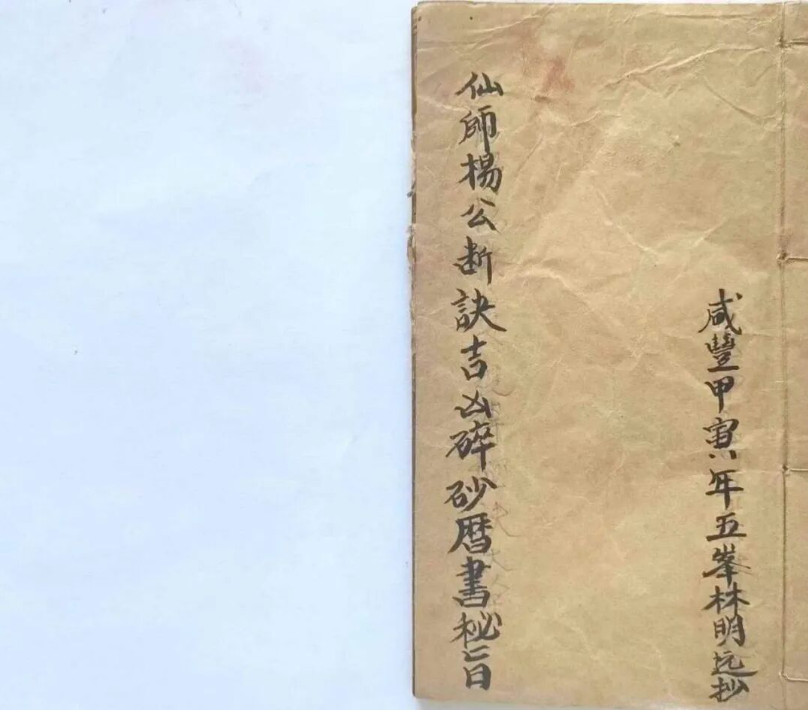 咸豐甲寅年五峯林明远抄
仙師楊公断訣吉凶碎砂暦書秘旨